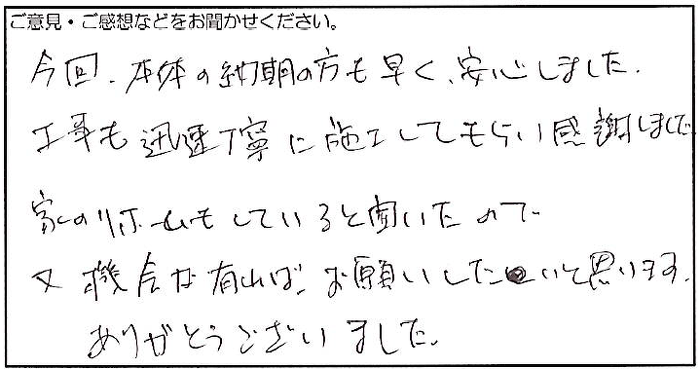 ご意見・ご感想などをお聞かせください。
今回、本体の納期の方も早く、安心しました。
工事も迅速丁寧に施工してもらい感謝しました
家のリホームもしていると聞いたので
又機会な有れば、お願いしたいと思います。
ありがとうございました。